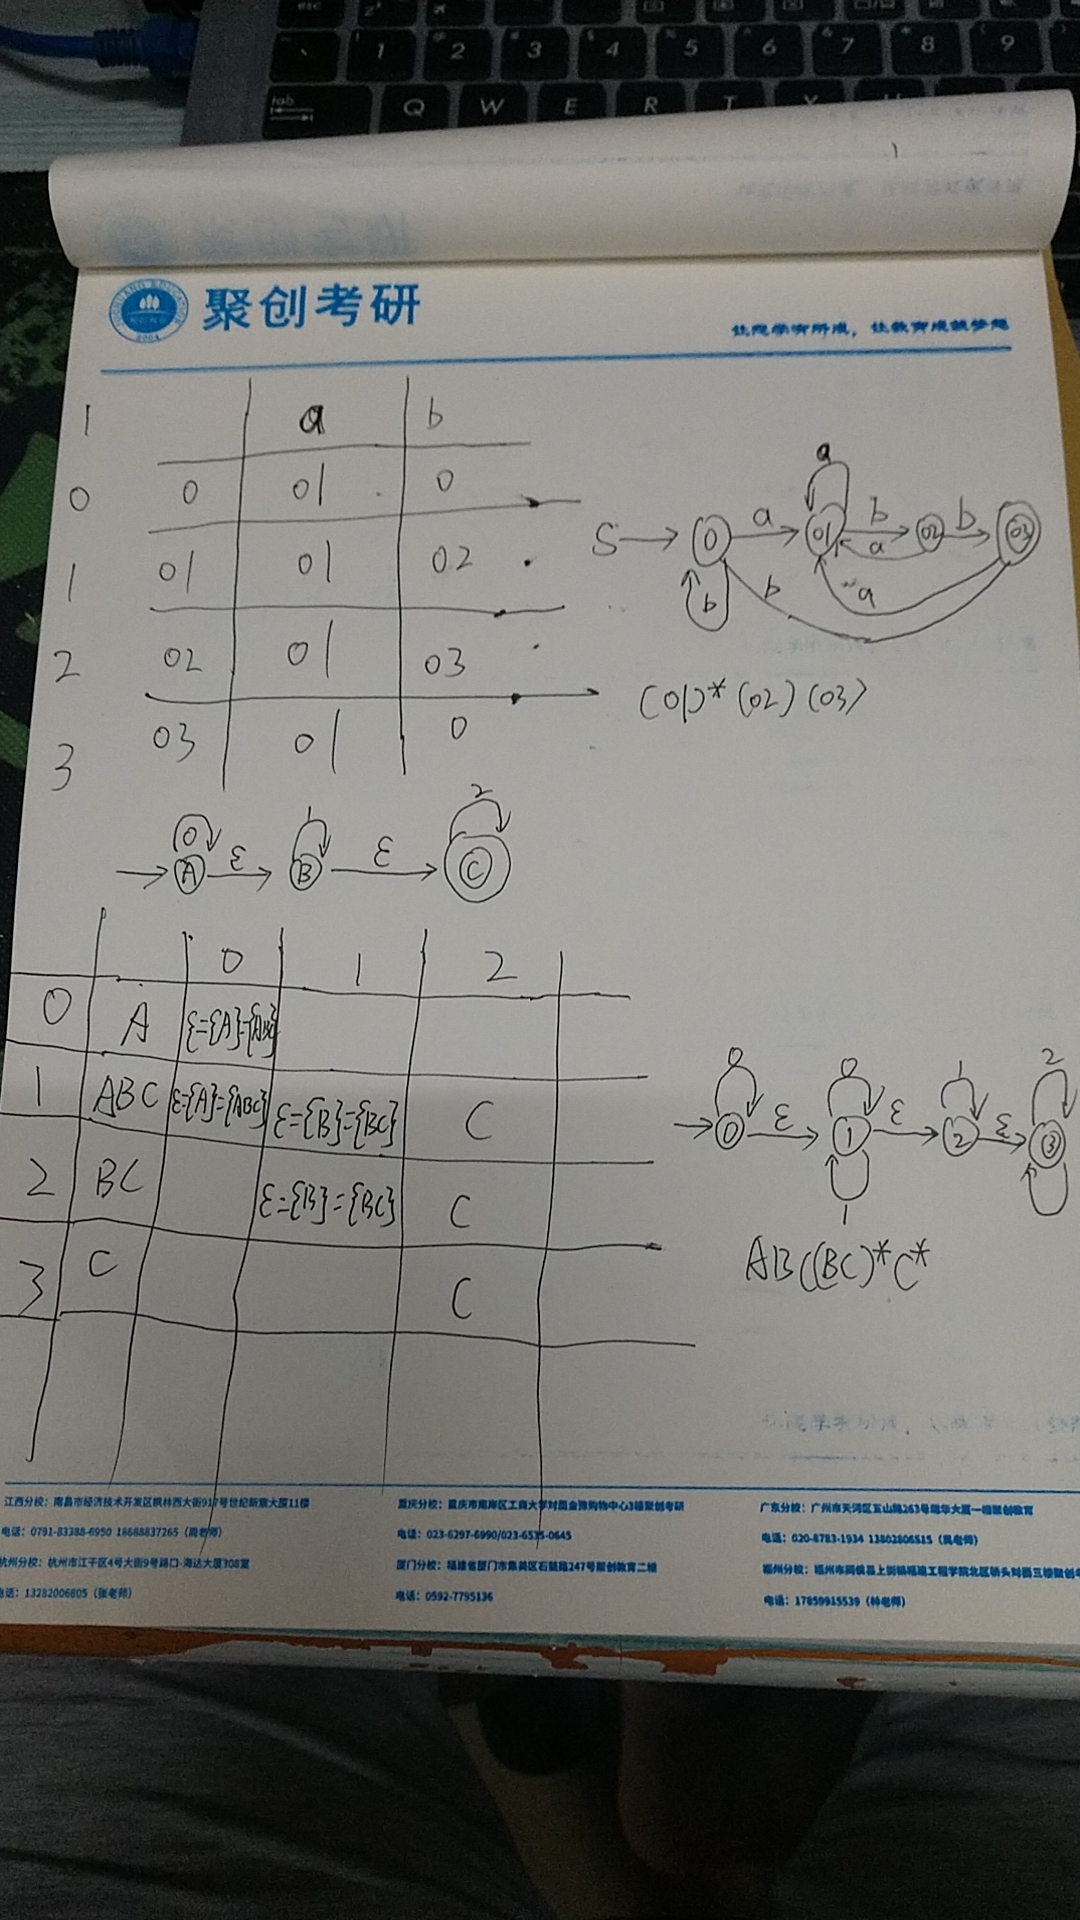 esc
1 2 3 4 5 6 7 8 9
tab Q W E R T Y
聚创考研
让您学有所成，让教育成就梦想
1 a b
0 0 01 0
1 01 01 02
2 02 01 03
3 03 01 0
S 0 a 01 a b a 02 b 03
b b a
(01)*(02)(03)
0 1 2
A ε B ε C
0 1 2
0 A ε={A}={ABC}
1 ABC ε={A}={ABC} ε={B}={BC} C
2 BC ε={B}={BC} C
3 C C
0 0 1 2
0 ε 1 ε 2 ε 3
1
AB((BC)*C*
江西分校：南昌市经济技术开发区枫林西大街917号世纪新宸大厦11楼
电话：0791-83388-6950 18688837265（周老师）
杭州分校：杭州市江干区4号大街9号路口-海达大厦308室
电话：13282006805（张老师）
重庆分校：重庆市南岸区工商大学对面金隆购物中心3楼聚创考研
电话：023-6297-6990/023-6535-0645
厦门分校：福建省厦门市集美区石鼓路247号聚创教育二楼
电话：0592-7795136
广东分校：广州市天河区五山路263号瑞华大厦一楼聚创教育
电话：020-8783-1934 13802806515（吴老师）
福州分校：福州市闽侯县上街镇福建工程学院北区桥头对面三楼聚创
电话：17859915539（林老师）